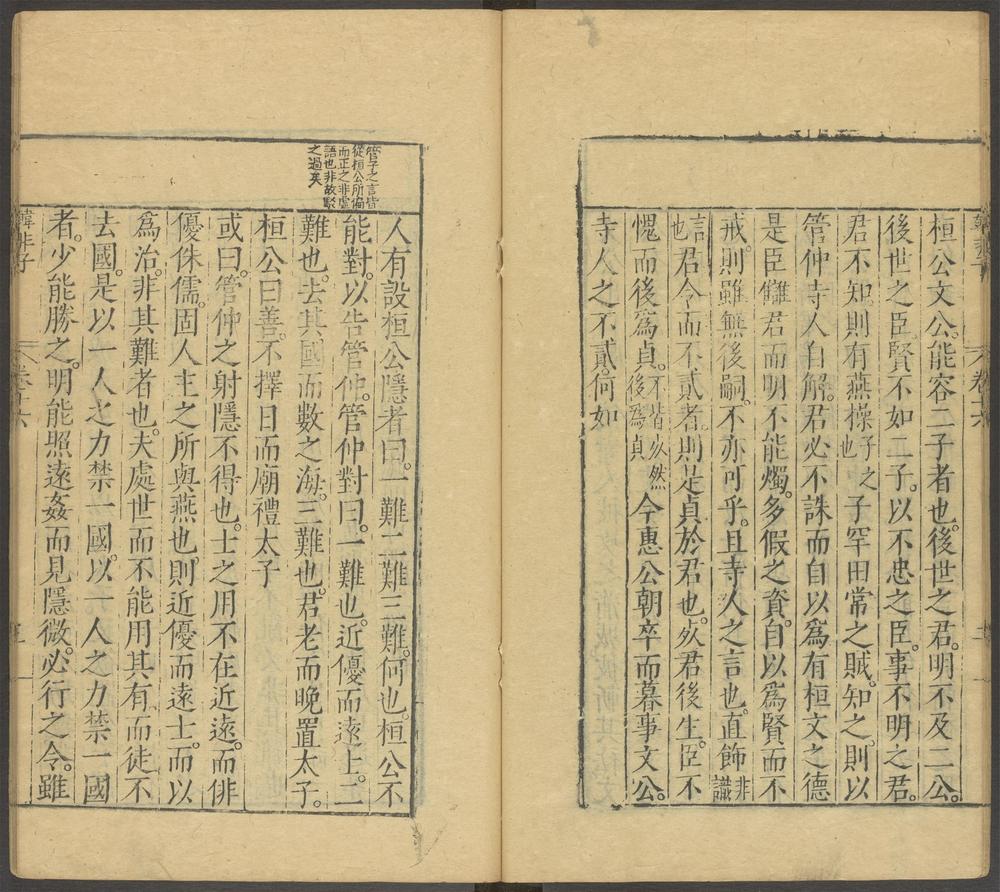 桓公文公。能容二子者也。後世之君。明不及二公。
後世之臣。賢不如二子。以不忠之臣。事不明之君。
君不知。則有燕操子之也子罕田常之賊。知之。則以
管仲寺人自解。君必不誅而自以爲有桓文之德
是臣讎君而明不能燭。多假之資。自以爲賢而不
戒。則雖無後嗣。不亦可乎。且寺人之言也。直飾非識
言也君令而不貳者。則是貞於君也。死君後生。臣不
愧而後爲貞。不皆必然後爲貞今惠公朝卒而暮事文公。
寺人之不貳。何如
卷十六
管子之言皆
從桓公所偏
而正之非虛
語也非故駁
之過矣
人有設桓公隱者曰。一難二難三難。何也。桓公不
能對。以告管仲。管仲對曰。一難也。近優而遠士。二
難也。去其國而數之海。三難也。君老而晚置太子。
桓公曰善。不擇日而廟禮太子
或曰。管仲之射隱不得也。士之用不在近遠。而俳
優侏儒。固人主之所與燕也。則近優而遠士。而以
爲治。非其難者也。夫處世而不能用其有。而徒不
去國。是以一人之力禁一國。以一人之力禁一國
者。少能勝之。明能照遠姦而見隱微。必行之令。雖
韓非子 卷十六